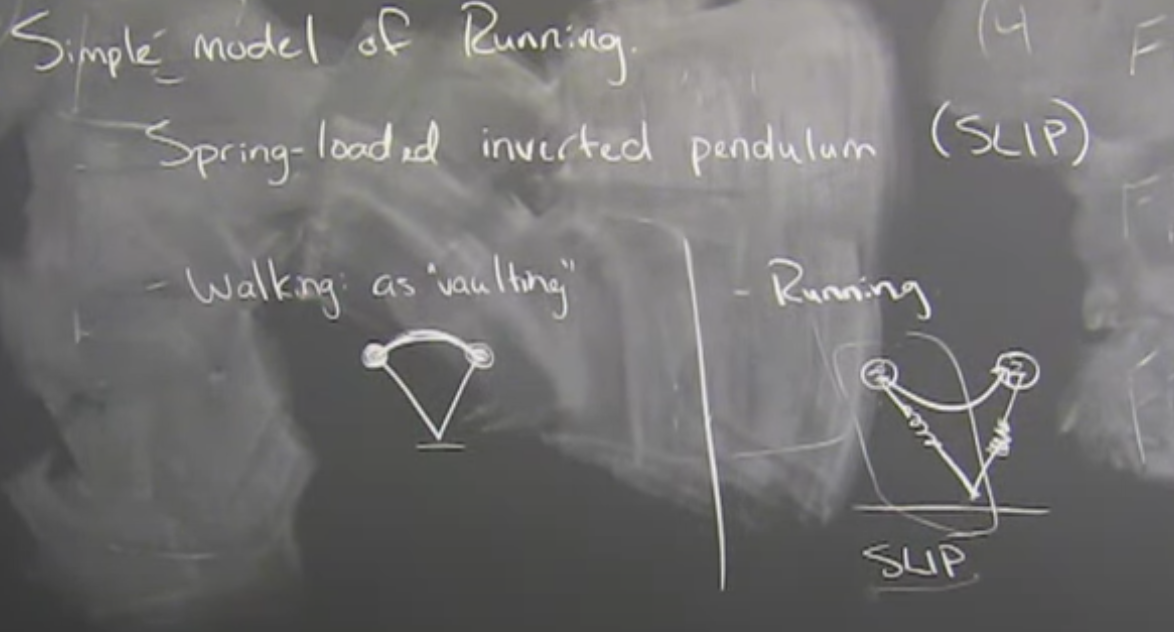 Simple model of Running.
Spring-loaded inverted pendulum (SLIP)
- Walking: as "vaulting"
- Running
SLIP